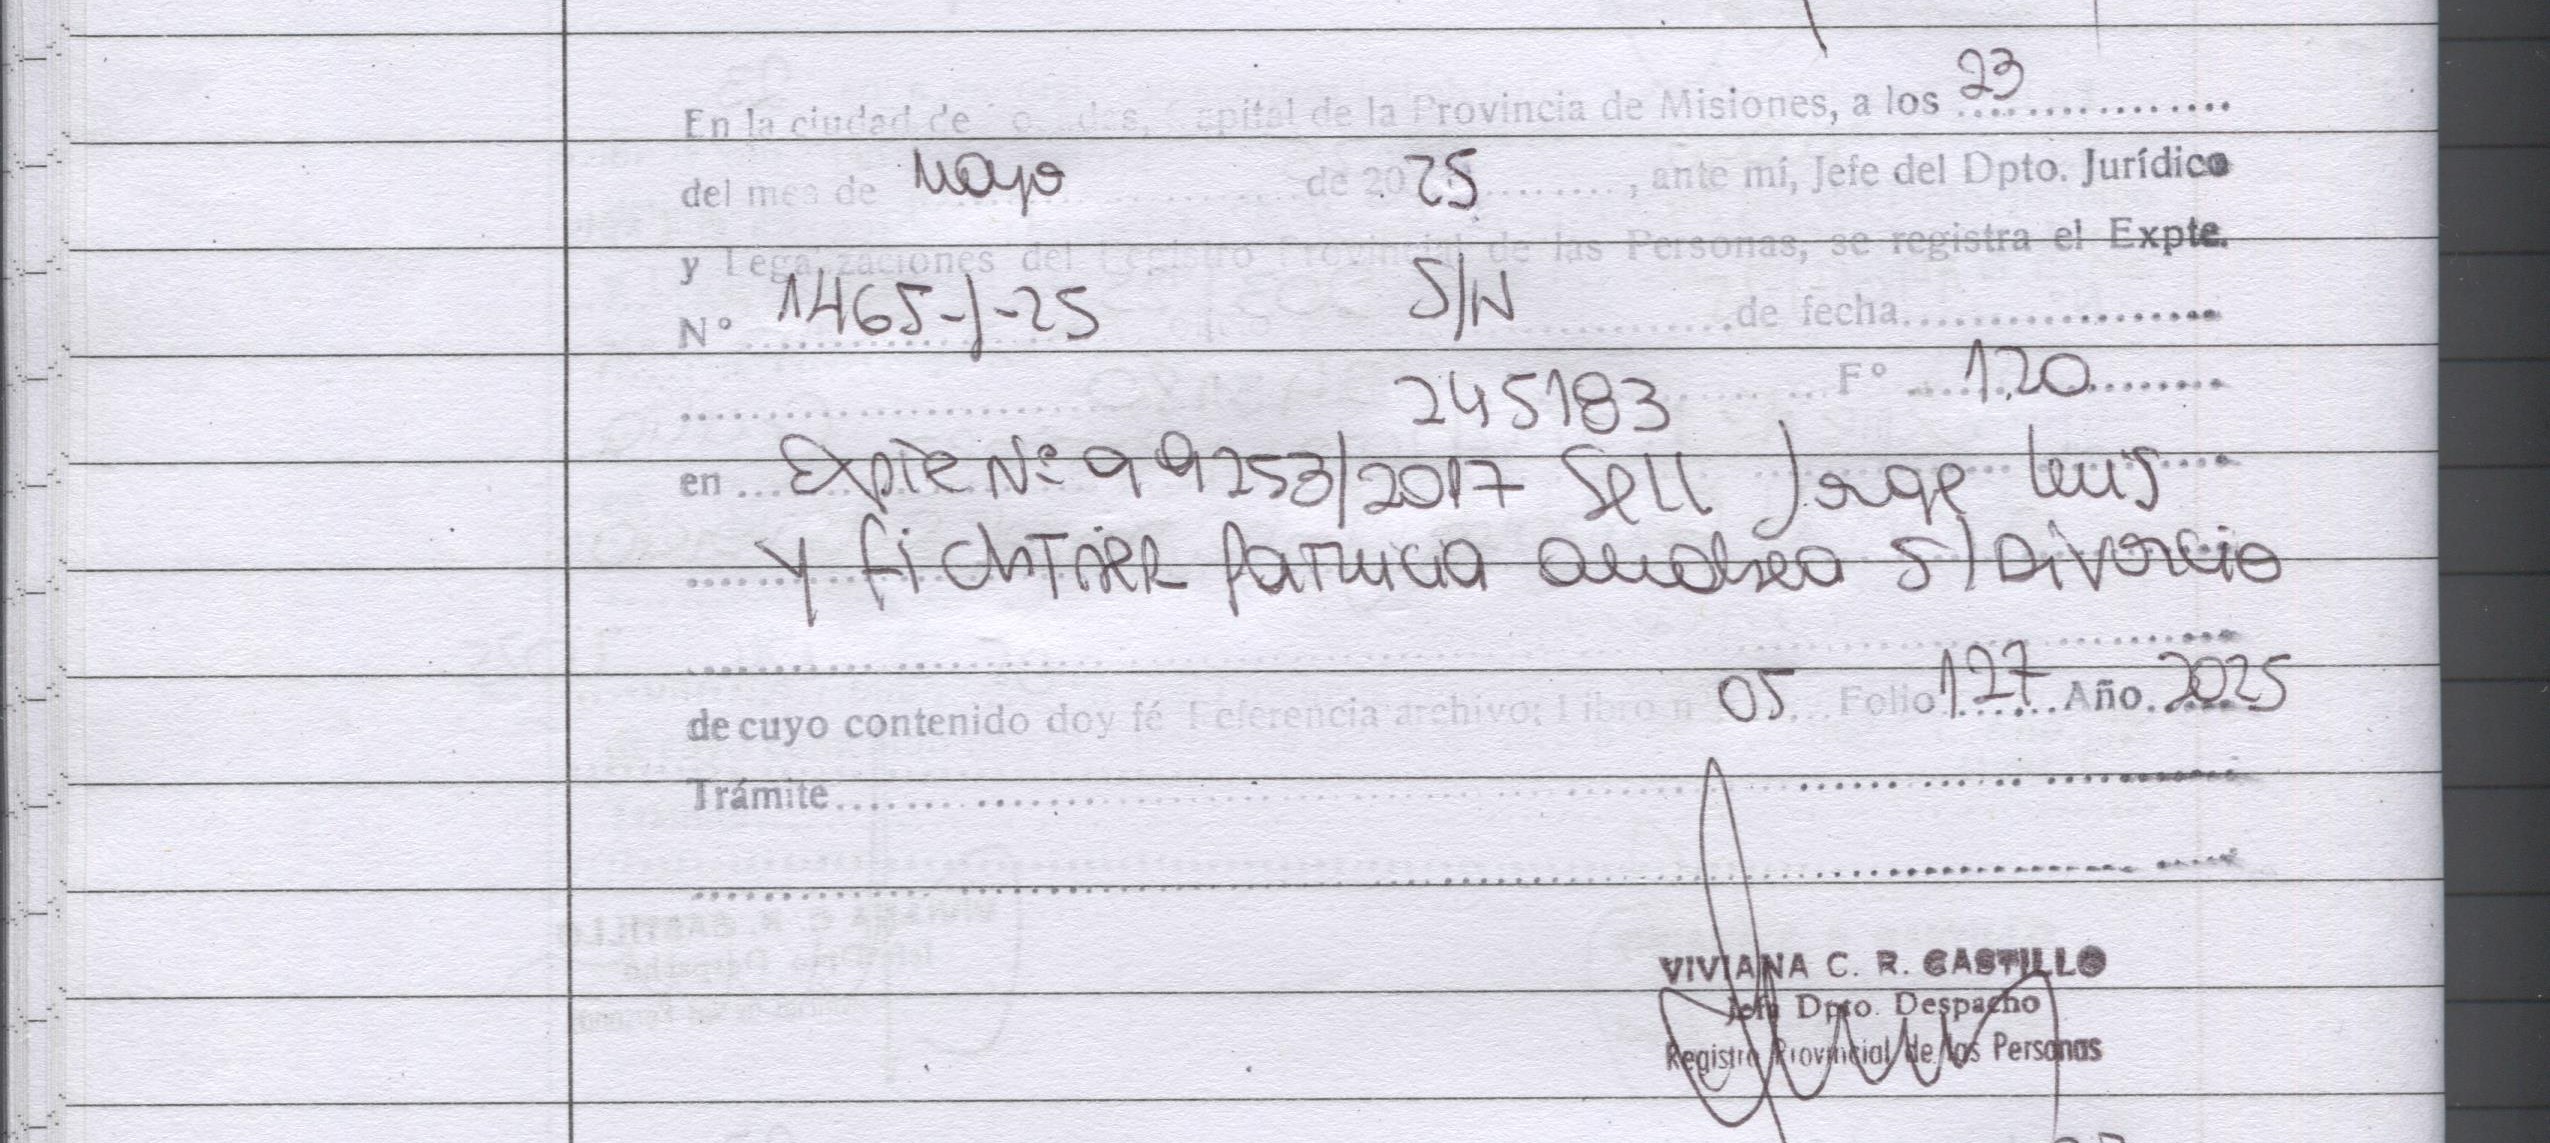 En la ciudad de Posadas, Capital de la Provincia de Misiones, a los 23
del mes de Mayo de 20 25, ante mí, Jefe del Dpto. Jurídico
y Legalizaciones del Registro Provincial de las Personas, se registra el Expte.
N° 1465-J-25 S/N de fecha
245183 F° 120
en Expte N° 99253/2017 Sell Jorge Luis
y fichTNER PaTricia andrea S/DiVorcio
de cuyo contenido doy fé Referencia archivo: Libro n 05 Folio 127 Año 2025
Trámite
VIVIANA C. R. CASTILLO
Jefa Dpto. Despacho
Registro Provincial de las Personas